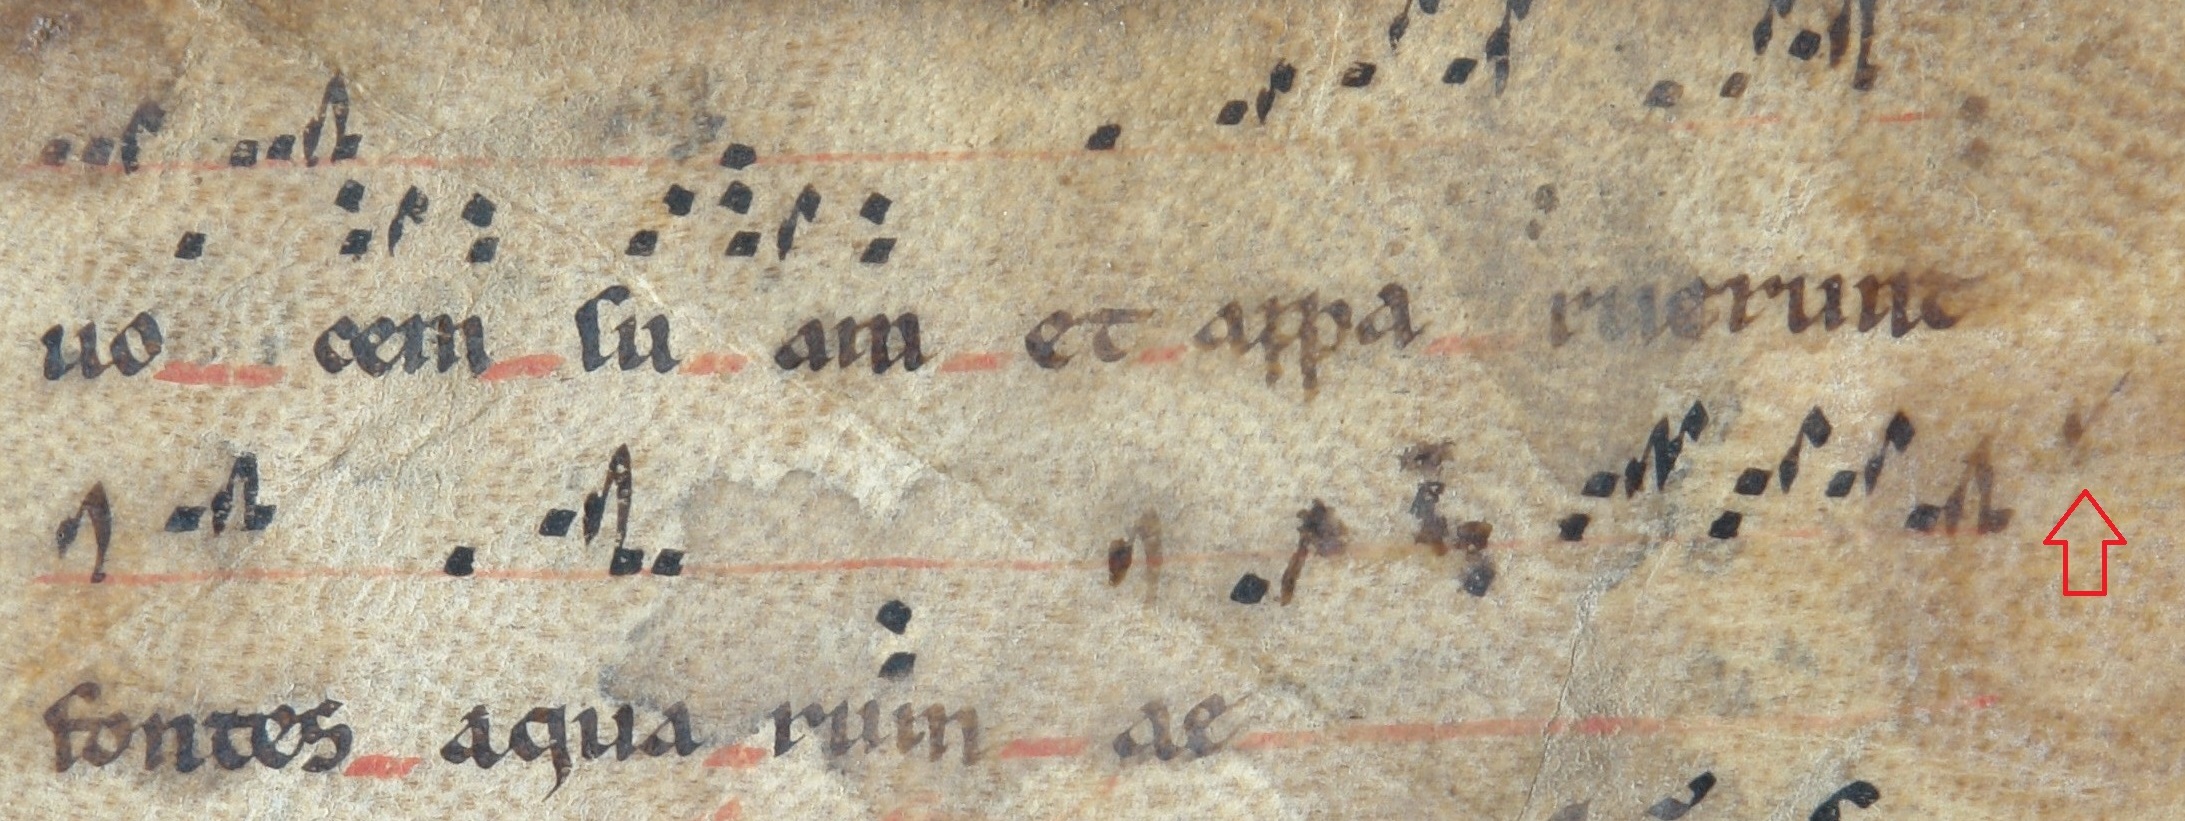 uo cem su am et appa ruerunt
fontes aqua rum ae